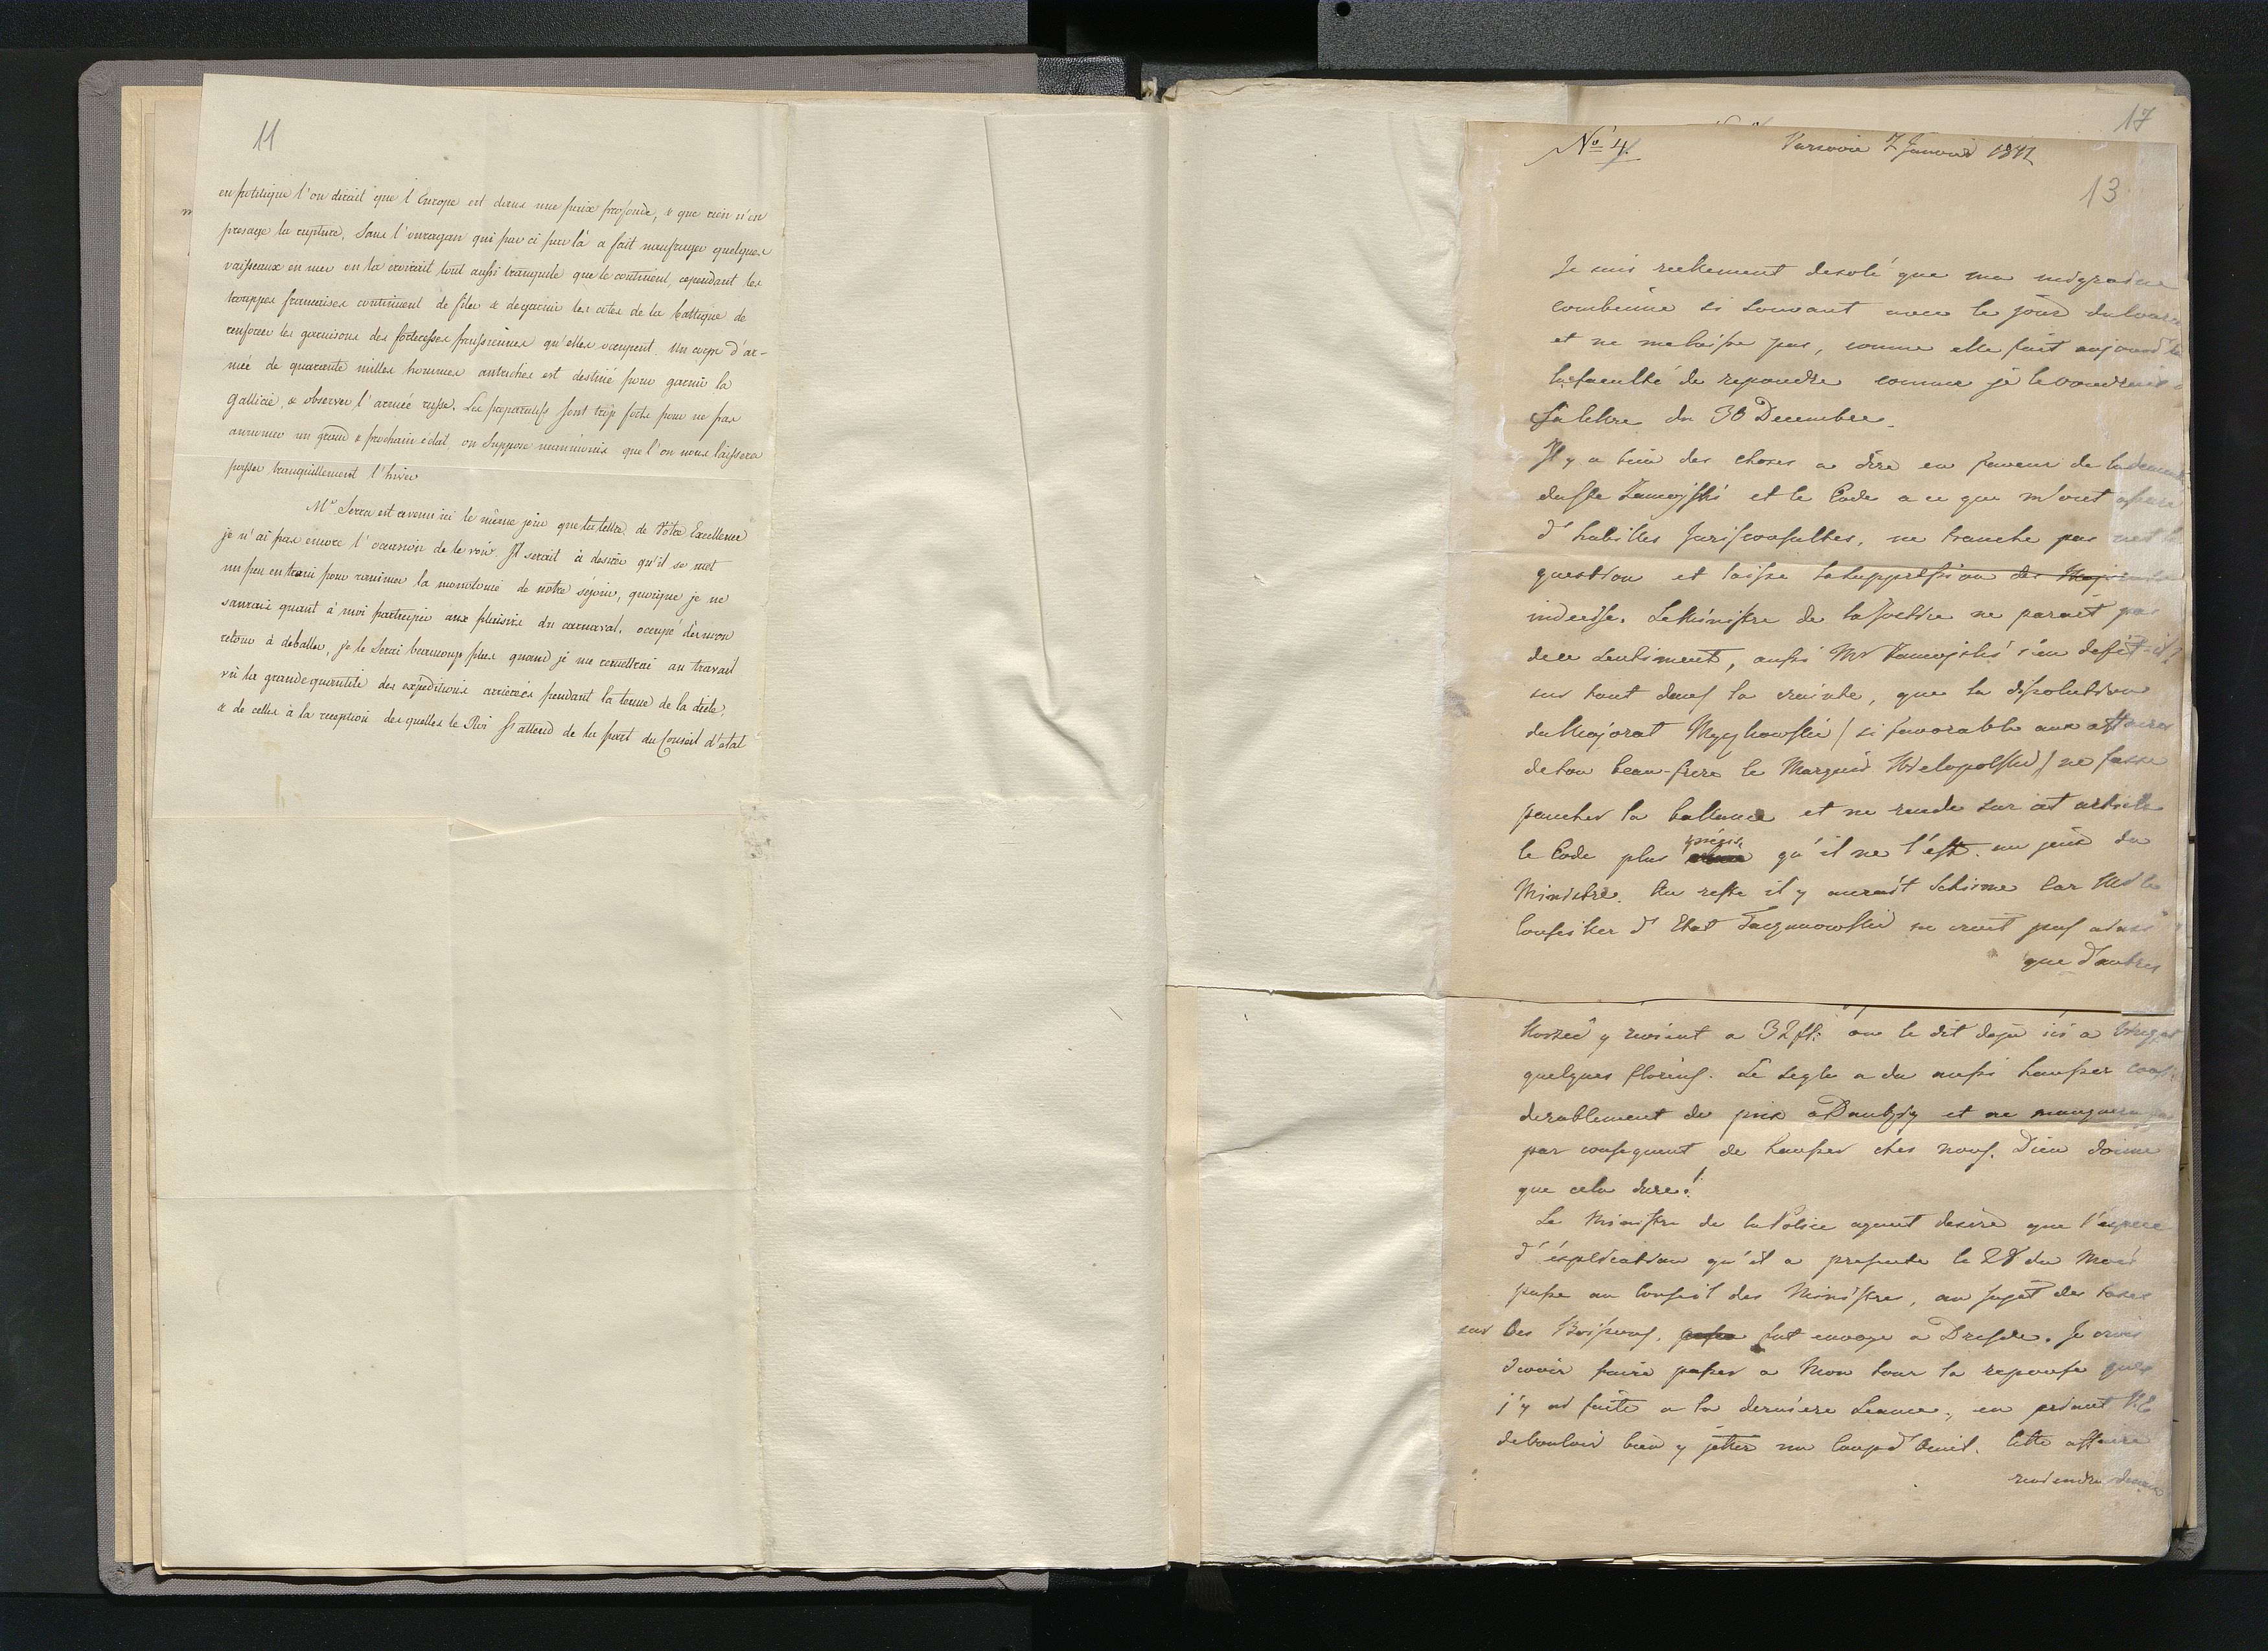 11
en politique l'on dirait que l'Europe est dans une paix profonde, & que rien n'en
presage la rupture. Sans l'ouragan qui par ci par là a fait naufrager quelques
vaisseaux en mer on la croirait tout aussi tranquile que le continent, cependant les
trouppes francaises continuent de filer & degarnir les côtes de la baltique de
renforcer les garnisons des forteresses prussiennes qu'elles occupent. Un corps d'ar-
mée de quarante milles hommes autriches est destiné pour garnir la
Gallicie, & observer l'armée russe. Les preparatifs sont trop forts pour ne pas
annoncer un grand & prochain éclat, on suppose neanmoins que l'on nous laissera
passer tranquillement l'hiver
Mr Serra est revenu ici le même jour que la lettre de Votre Excellence
je n'ai pas encore l'occasion de le voir. Il serait à desirer qu'il se met
un peu en train pour ranimer la monotonie de notre séjour, quoique je ne
saurais quant à moi participer aux plaisirs du carnaval, occupé dès mon
retour à deballer, je le serai beaucoup plus quand je me remettrai au travail
vû la grande quantité des expeditions arriérées pendant la tenue de la diete,
& de celles à la reception des quelles le Roi s'attend de la part du Conseil d'etat
17
No 4.
Varsovie 7 Janvier 1812
13
Je suis reellement desolé que ma migraine
combinne si souvant avec le jour du
et ne me laisse pas, comme elle fait aujourd'hui
la faculté de repondre comme je le voudrais
Sa lettre du 30 Decembre.
Il y a bien des choses a dire en faveur de la
Zamoyski et le Code a ce que m'ont
d'habilles Jurisconsultes, ne tranche pas net la
question et laisse la suppression des
indecise. Le Ministre de la Justice ne parait pas
de ce sentiment, aussi Mr Zamoyski s'en defit-il
sur tout dans la crainte, que la dissolution
du Majorat Myszkowski / si favorable aux affaires
de son beau-frere le Marquis Wielopolski / ne fasse
pancher la ballance et ne rende sur cet article
le Code plus précis qu'il ne l'est au gré du
Ministre. Au reste il y aurait Schisme car Mr le
Conseiller d'Etat ne croit pas
que d'autres
Korzec y revient a 32 fl: on le dit deja ici a
quelques florins. Le segle a du aussi hausser consi
derablement de prix a Dantzig et ne manquera pas
par consequent de hausser chés nous. Dieu donne
que cela dure!
Le Ministre de la Police ayant desiré que l'espece
d'explication qu'il a presenté le 28 du Mois
passé au Conseil des Ministres, au sujet des taxes
sur les Boissons, fut envoyé a Dresde. Je crois
devoir faire passer a Mon tour la reponse que
j'y ai faite a la derniere seance, en priant V.E
de vouloir bien y jetter un Coup d'Oeuil. Cette affaire
reviendra